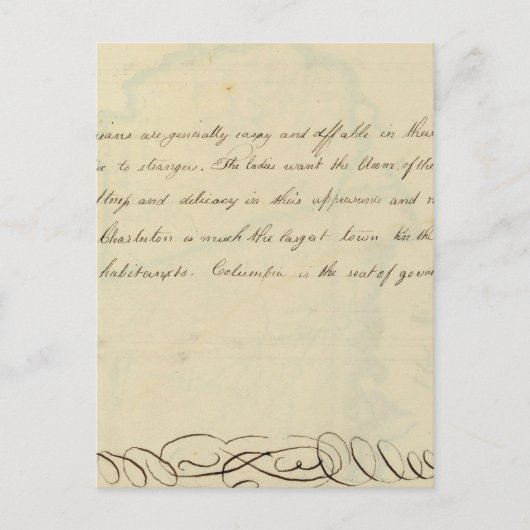 ians are generally easy and affable in their
to strangers. The ladies want the bloom of the
and delicacy in their appearance and
Charleston is much the largest town in the
habitants. Columbia is the seat of gover